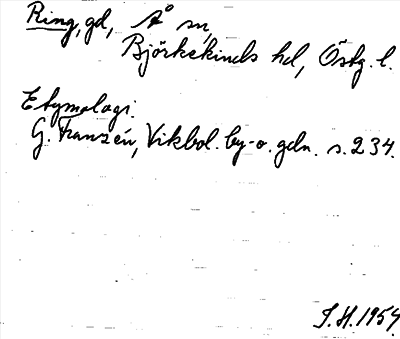 Ring, gd, Å sn,
Björkekinds hd, Östg. l.
Etymologi:
G. Franzén, Vikbol. by- o. gdn. s. 234.
I.H. 1954